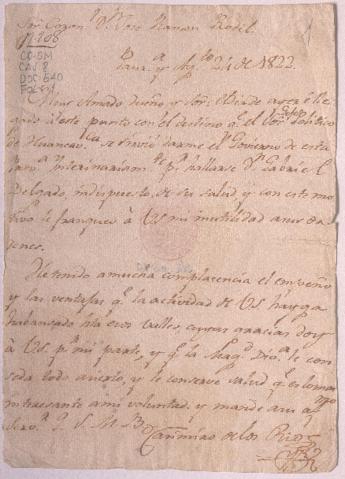 Sor Coron.l Dn José Ramon Rodil.
CO-SM
CAJ. 8
DOC. 540
FOL. 1
y Ag.to 24 de 1822.
Muy Amado dueño y Sor. El dia de ayer é lle
gado á este punto con el destino q.e el Sor. Gefe Politico
de Huancav.ca se sirvió darme el Govierno de esta
interinariam.te p.r hallarse Dn Gabriel
Delgado, indispuesto de su salud, y con este mo
tivo le franqueo á VS mi inutilidad a sus orde
nes.
He tenido a mucha complacencia el empeño
y las ventajas q.e la actividad de VS haiga
alcanzado esos valles, cuyas gracias doy
á VS p.r mi parte, y q.e la Mag.d Divi.a le con
seda todo acierto, y le conserve salud q.e es lo mas
interesante a mi voluntad, y mande a su
Q. S. M. B.
Casimiro de los Rios